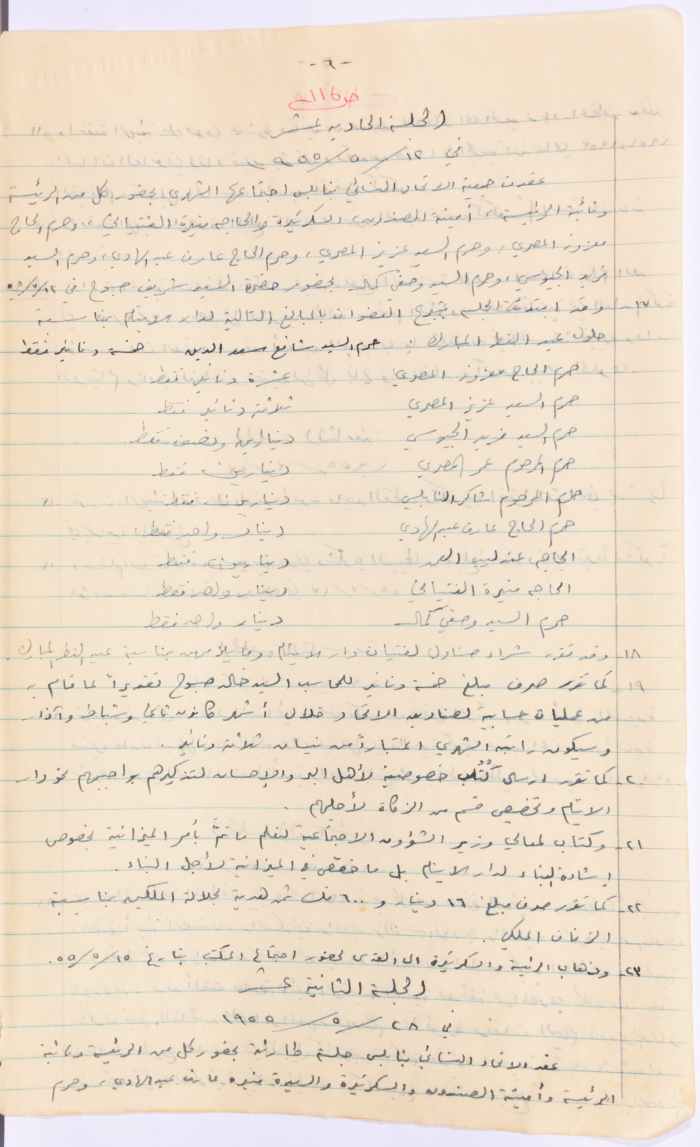 -٦-
ص ١١٦
الجلسة الحادية عشر
في ١٢/٥/١٩٥٥
عقدت جمعية الاتحاد النسائي بنابلس اجتماعها الشهري بحضور كل من الرئيسة
ونائبة الرئيسة، أمينة الصندوق، السكرتيرة والحاجه منيرة الفتياني، وحرم الحاج
معزوز المصري، وحرم السيد عزيز المصري، وحرم الحاج عارف عبد الهادي، وحرم السيد
فريد الجيوسي، وحرم السيد وصفي كمال بحضور حضرة السيد شريف صبوح في ١٢/٥/٥٥
١٧- وقد ابتدأت الجلسه بتبرع العضوات بالمبالغ التالية لدار بمناسبة
حلول عيد الفطر المبارك. حرم السيد شافع سعد الدين خمسة دنانير فقط
حرم الحاج معزوز المصري عشرة دنانير فقط
حرم السيد عزيز المصري ثلاثة دنانير فقط
حرم السيد فريد الجيوسي دينارين ونصف فقط
حرم المرحوم عمر المصري دينارين فقط
حرم المرحوم شاكر النابلسي دينارين فقط
حرم الحاج عارف عبد الهادي دينار واحد فقط
الحاجه عندليب العمد دينارين فقط
الحاجه منيرة الفتياني دينار واحد فقط
حرم السيد وصفي كمال دينار واحد فقط
١٨- وقد تقرر شراء صنادل لفتيات دار الايتام بمناسبة عيد الفطر المبارك.
١٩- كما تقرر صرف مبلغ خمسة دنانير للمحاسب السيد خالد صبوح تقديراً لما قام به
من عمليات حسابية لصناديق الاتحاد خلال أشهر كانون ثاني وشباط وآذار
وسيكون راتبه الشهري اعتباراً من نيسان ثلاثة دنانير.
٢٠- كما تقرر ارسال كُتُب خصوصية لأهل البر والإحسان لتذكيرهم بواجبهم نحو دار
الايتام وتخصيص قسم من الزكاة لأجلهم.
٢١- وكتاب لمعالي وزير الشؤون الاجتماعية لنعلم ما تمَّ بأمر الميزانية بخصوص
إشادة البناء لدار الايتام بل ما خصّص في الميزانية لأجل البناء.
٢٢- كما تقرر صرف مبلغ ١٦ دينار و ٦٠٠ فلس ثمن هدية لجلالة الملكين بمناسبة
الزفاف الملكي.
٢٣- وذهاب الرئيسة والسكرتيرة الى القدس لحضور اجتماع المكتب بتاريخ ١٥/٥/٥٥.
الجلسة الثانية عشر
في ٢٨/٥/١٩٥٥
عقد الاتحاد النسائي بنابلس جلسة طارئة بحضور كل من الرئيسة ونائبة
الرئيسة وأمينة الصندوق والسكرتيرة والسيدة منيره عارف عبد الهادي، وحرم